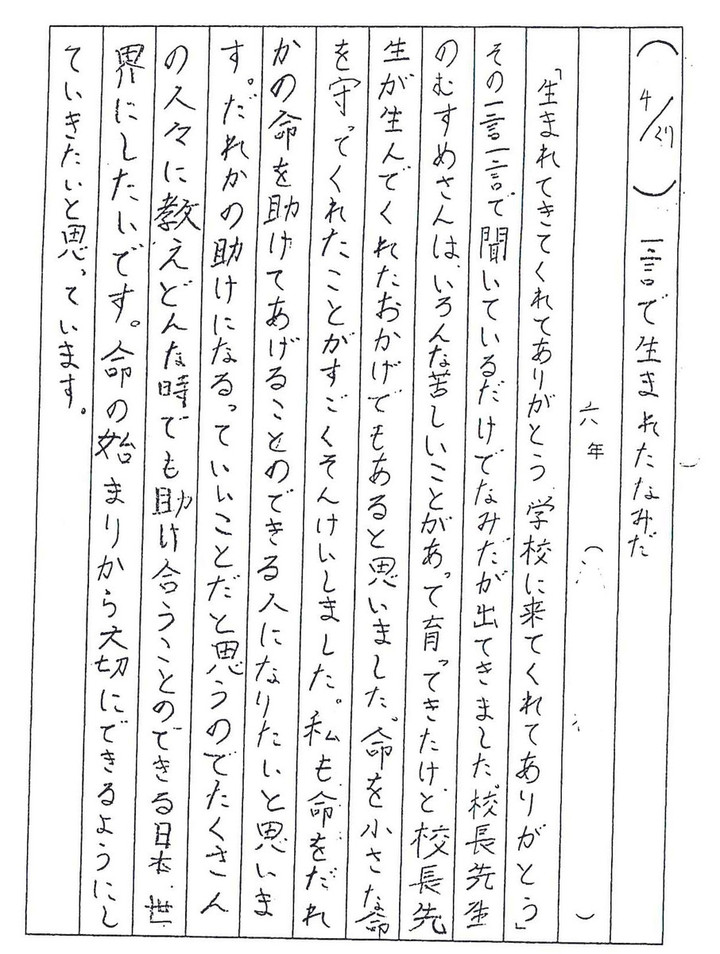 (4/27) 一言で生まれたなみだ
六年 ( )
「生まれてきてくれてありがとう 学校に来てくれてありがとう」
その一言一言で聞いているだけでなみだが出てきました。校長先生
のむすめさんは、いろんな苦しいことがあって育ってきたけど校長先
生が生んでくれたおかげでもあると思いました。命を小さな命
を守ってくれたことがすごくそんけいしました。私も命をだれ
かの命を助けてあげることのできる人になりたいと思いま
す。だれかの助けになるっていいことだと思うのでたくさん
の人々に教えどんな時でも助け合うことのできる日本、世
界にしたいです。命の始まりから大切にできるようにし
ていきたいと思っています。